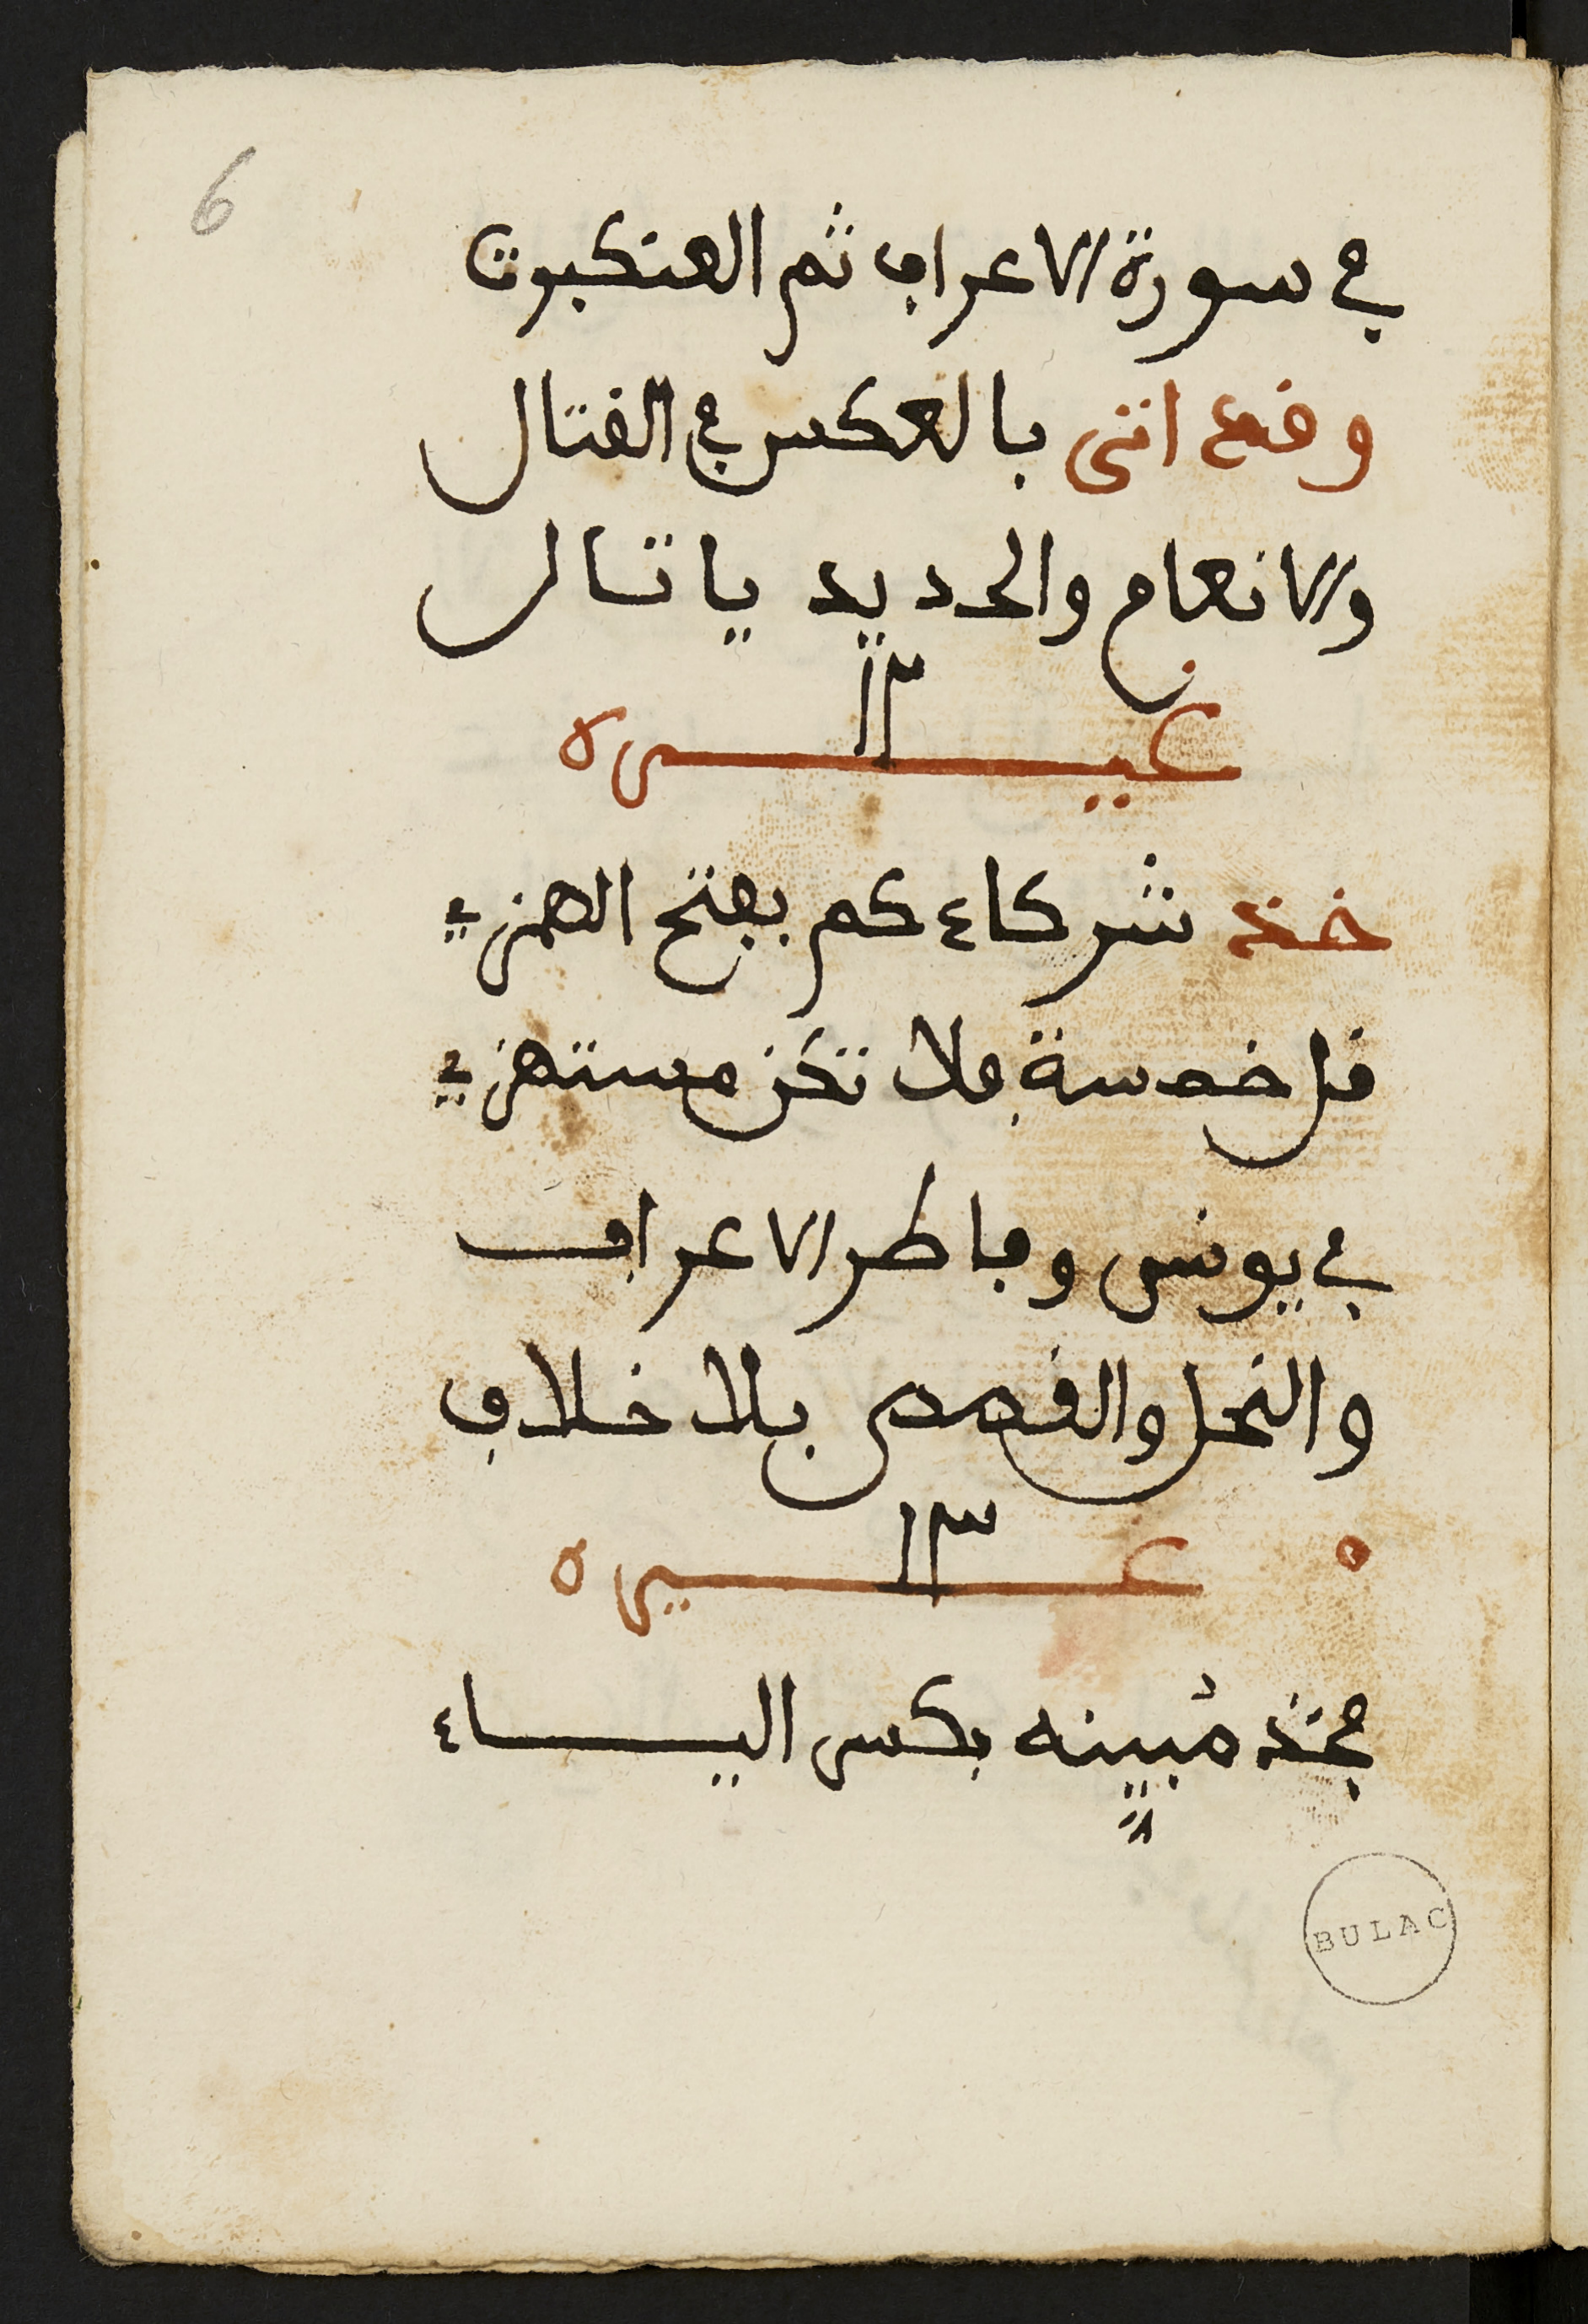 6
في سورة الاعراف ثم العنكبوت
وقع اتى بالعكس في القتال
والانعام والحديد يا تال
١٢
غيره
خذ شركاءكم بفتح الهمزء
قل خمسة فلا تكن مستهزء
في يونس وفاطر الاعراف
والنحل والقصص بلا خلاف
١٣
غيره
فخذ مُبيِّنه بكسر الياء
BULAC